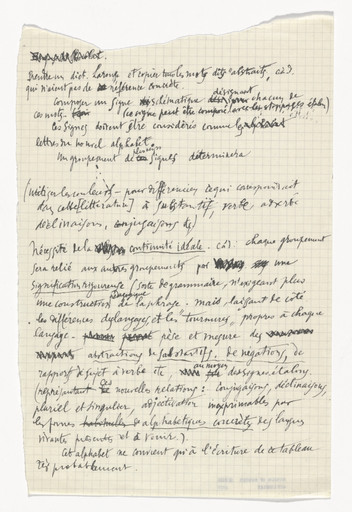 Prendre un dict. Larousse et copier tous les mots dits "abstraits", càd.
qui n'aient pas de référence concrète
Composer un signe schématique désignant chacun de
ces mots. (ce signe peut être composé avec les stoppages étalon)
Ces signes doivent être considérés comme les
lettres du nouvel alphabet.
Un groupement de plusieurs signes déterminera
(utiliser les couleurs — pour différencier ce qui correspondrait
dans cette [littérature] à substantif, verbe adverbe
déclinaisons, conjugaisons etc)
Nécessité de la continuité idéale. càd: chaque groupement
sera relié aux autres groupements par une
signification rigoureuse (sorte de grammaire, n'exigeant plus
une construction de la phrase. Mais, laissant de côté
les différences des langages, et les "tournures" propres à chaque
langage. pèse et mesure des
abstractions de substantifs, de négations, de
rapports de sujet à verbe etc au moyen des signes étalons.
(représentant ces nouvelles relations: conjugaisons, déclinaisons,
pluriel et singulier, adjectivation inexprimables par
les formes alphabétiques concrètes des langues
vivantes présentes et à venir.).
Cet alphabet ne convient qu'à l'écriture de ce tableau
très probablement.